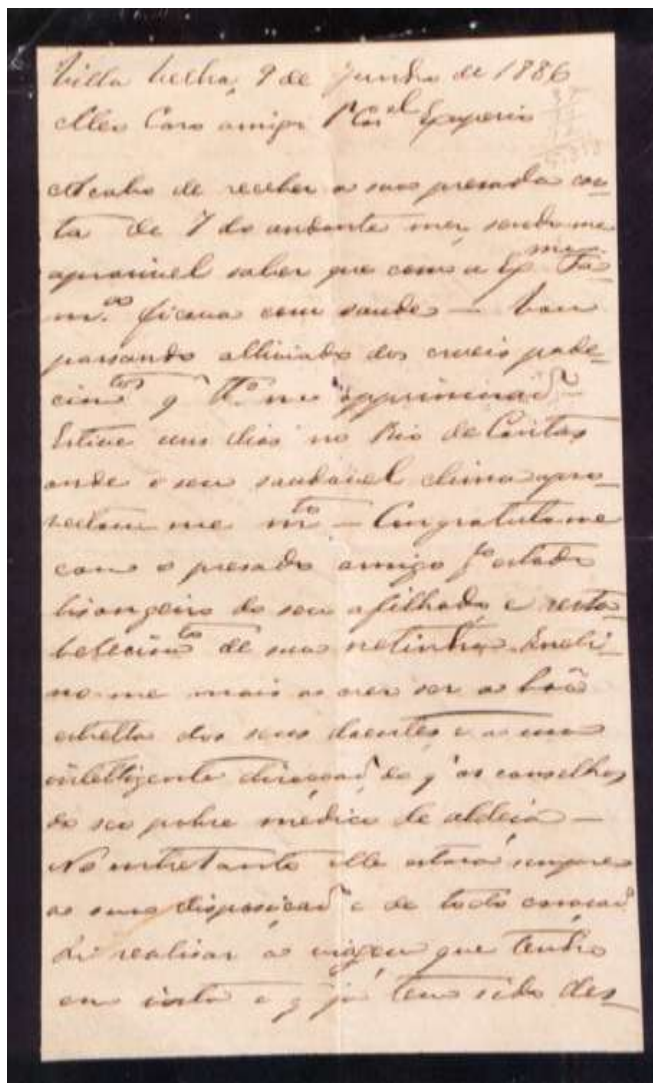 Villa Velha, 9 de Junho de 1886
Meo Caro amigo Exuperio
Acabo de receber a sua presada car-
ta de 7 do andante mez, sendo-me
aprasivel saber que com a Ex.ma Fa-
m.a ficava com saude — Vou
passando alliviado dos crueis pade-
cim.tos q' me opprimiraõ —
Estive uns dias no Rio de Contas
onde o seu saudavel clima apro-
veitou-me m.to — Congratulo-me
com o presado amigo p.lo estado
lisongeiro do seu afilhado, e resta-
belecim.to de sua netinha. Incli-
no-me mais a crer ser a bôa
estrella dos seus doentes e a sua
intelligente direcçaõ, do q' os conselhos
do seo pobre medico de aldeia —
No entretanto elle estará sempre
a sua disposiçaõ e de todo coraçaõ
Si realisar a viagem que tenho
em vista e q' já tem sido des-